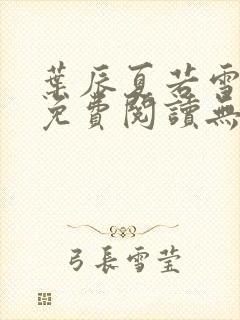 葉辰夏若雪
免費閱讀無
弓長雪莹